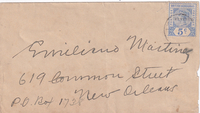 Emiliano Martinez
619 Common Street
P.O. Box
New Orleans
5d